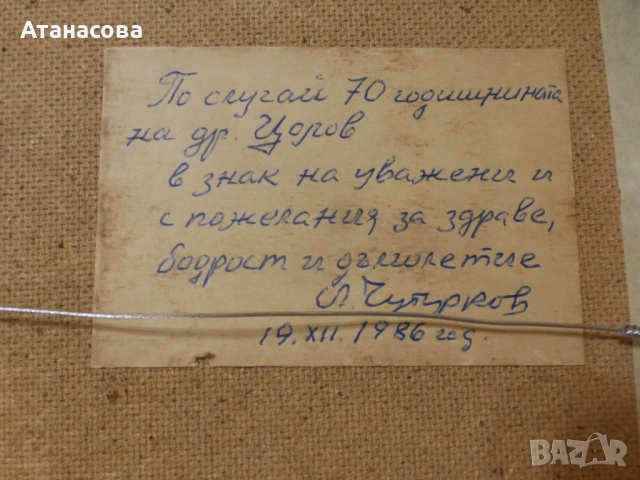 Атанасова
По случай 70 годишнината
на др. Цоров
в знак на уважени и
с пожелания за здраве,
бодрост и дълголетие
Л. Чупурков
19. XII. 1986 год.
BAZAR